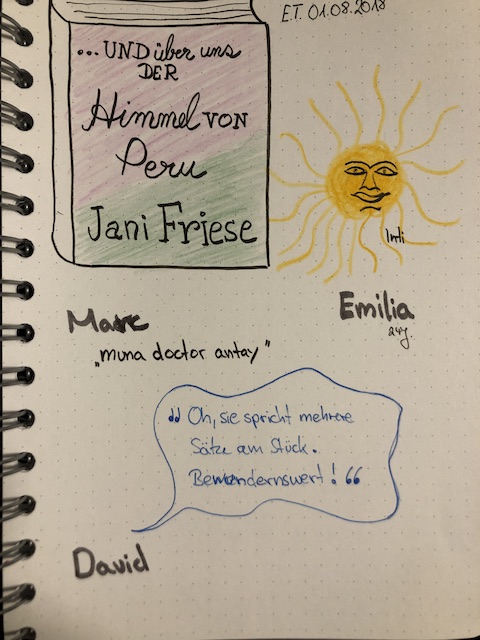 E.T. 01.08.2018
...UND über uns
DER
Himmel VON
Peru
Jani Friese
Inti
Emilia
24J.
Marc
„muna doctor antay"
„Oh, sie spricht mehrere
Sätze am Stück.
Bewundernswert!“
David